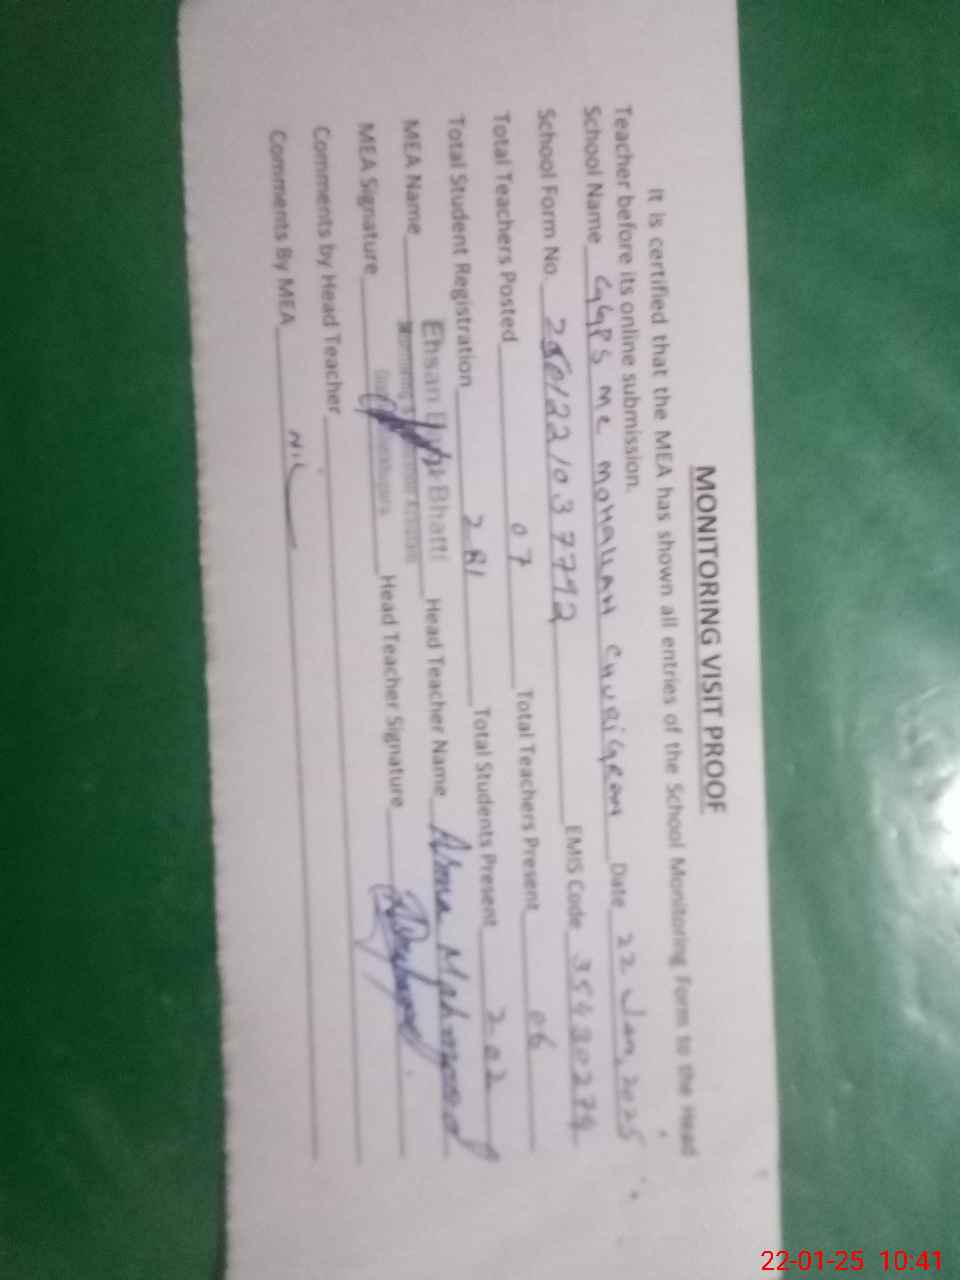 MONITORING VISIT PROOF
It is certified that the MEA has shown all entries of the School Monitoring Form to the Head
Teacher before its online submission.
School Name GGPS MC MOHALLAH Date 22 Jan, 2025
School Form No. EMIS Code
Total Teachers Posted 07 Total Teachers Present 06
Total Student Registration 281 Total Students Present 202
MEA Name Ehsan Bhatti Head Teacher Name Asma Mahmood
MEA Signature Head Teacher Signature
Comments by Head Teacher
Comments By MEA NIL
22-01-25 10:41